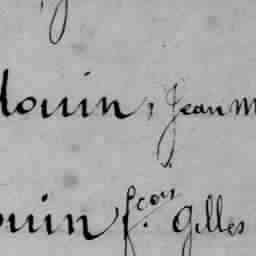 douin, Jean M
ouin fçois Gilles